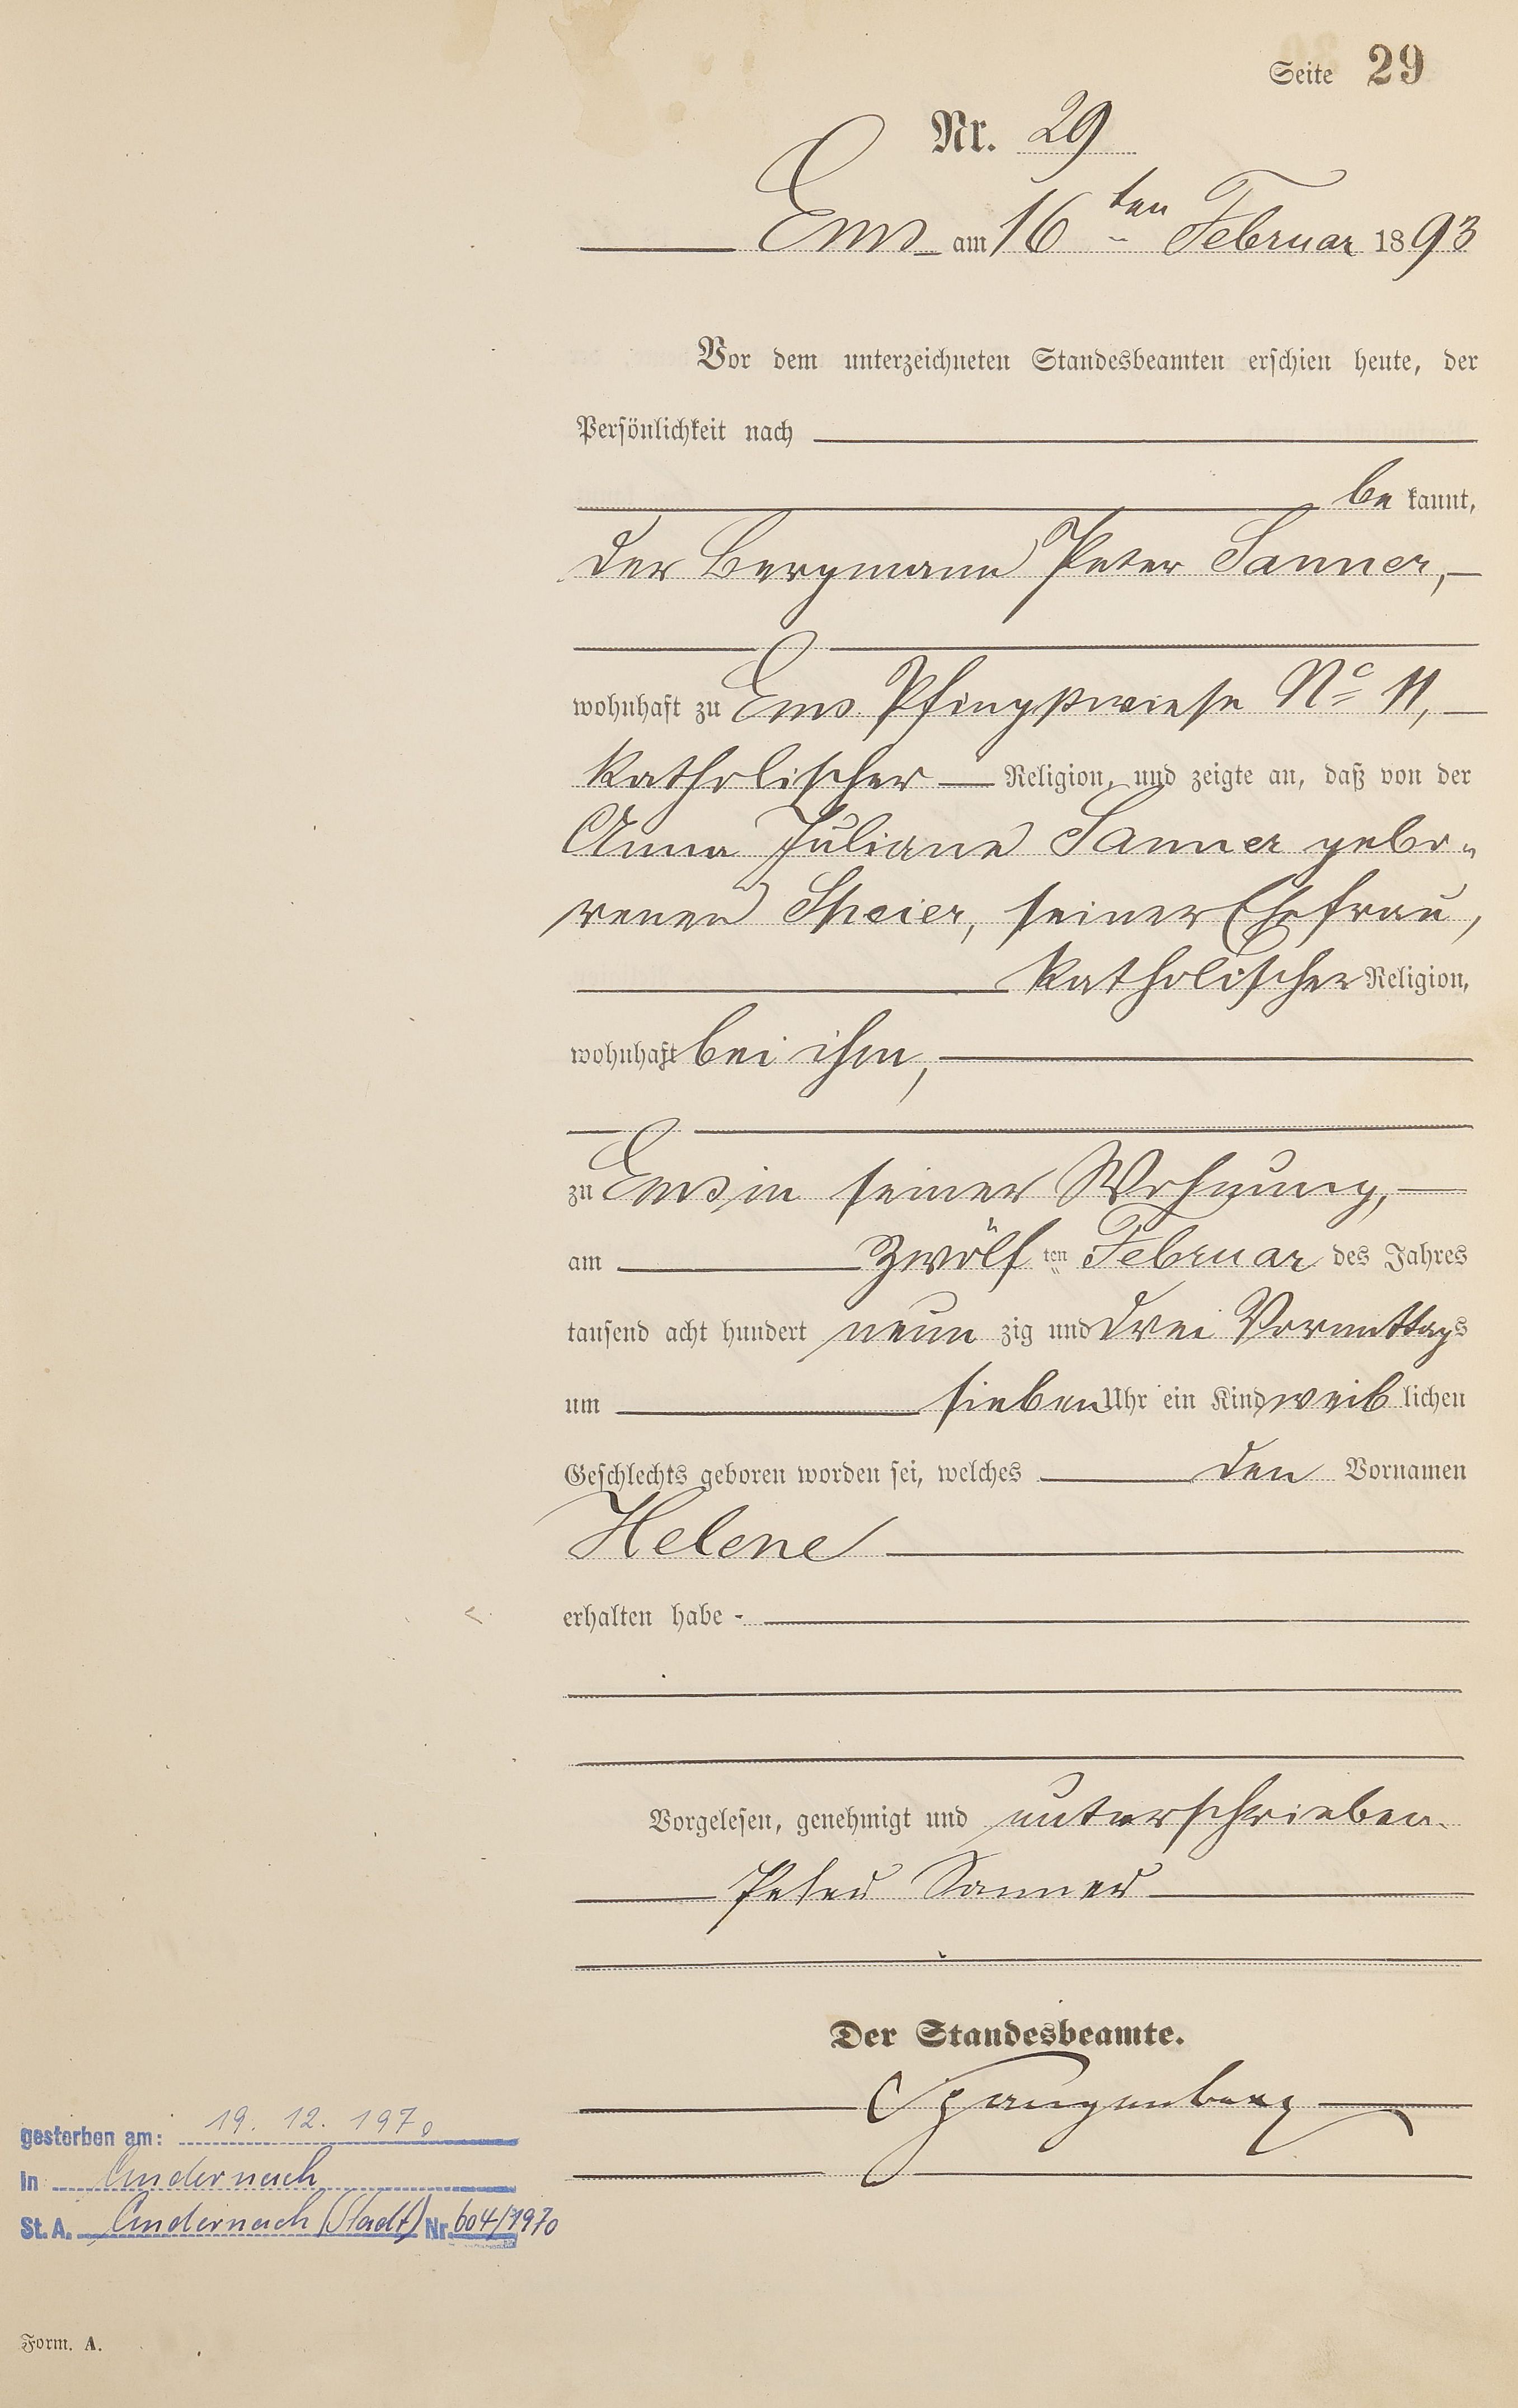 Seite 29
Nr. 29
Ems am 16ten Februar 1893
Vor dem unterzeichneten Standesbeamten erschien heute, der
Persönlichkeit nach
be kannt,
der Bergmann Peter Sanner,
wohnhaft zu Ems Pfingstwiese No 11,
katholischer Religion, und zeigte an, daß von der
Anna Juliane Sanner gebo-
renen Speier, seiner Ehefrau,
katholischer Religion,
wohnhaft bei ihm,
zu Ems in seiner Wohnung,
am zwölf ten Februar des Jahres
tausend acht hundert neun zig und drei Vormittags
um sieben Uhr ein Kind weib lichen
Geschlechts geboren worden sei, welches den Vornamen
Helene
erhalten habe -
Vorgelesen, genehmigt und unterschrieben.
Peter Sanner
Der Standesbeamte.
Spangenberg
gestorben am: 19. 12. 1970
in Andernach
St. A. Andernach (Stadt) Nr. 604/1970
Form. A.